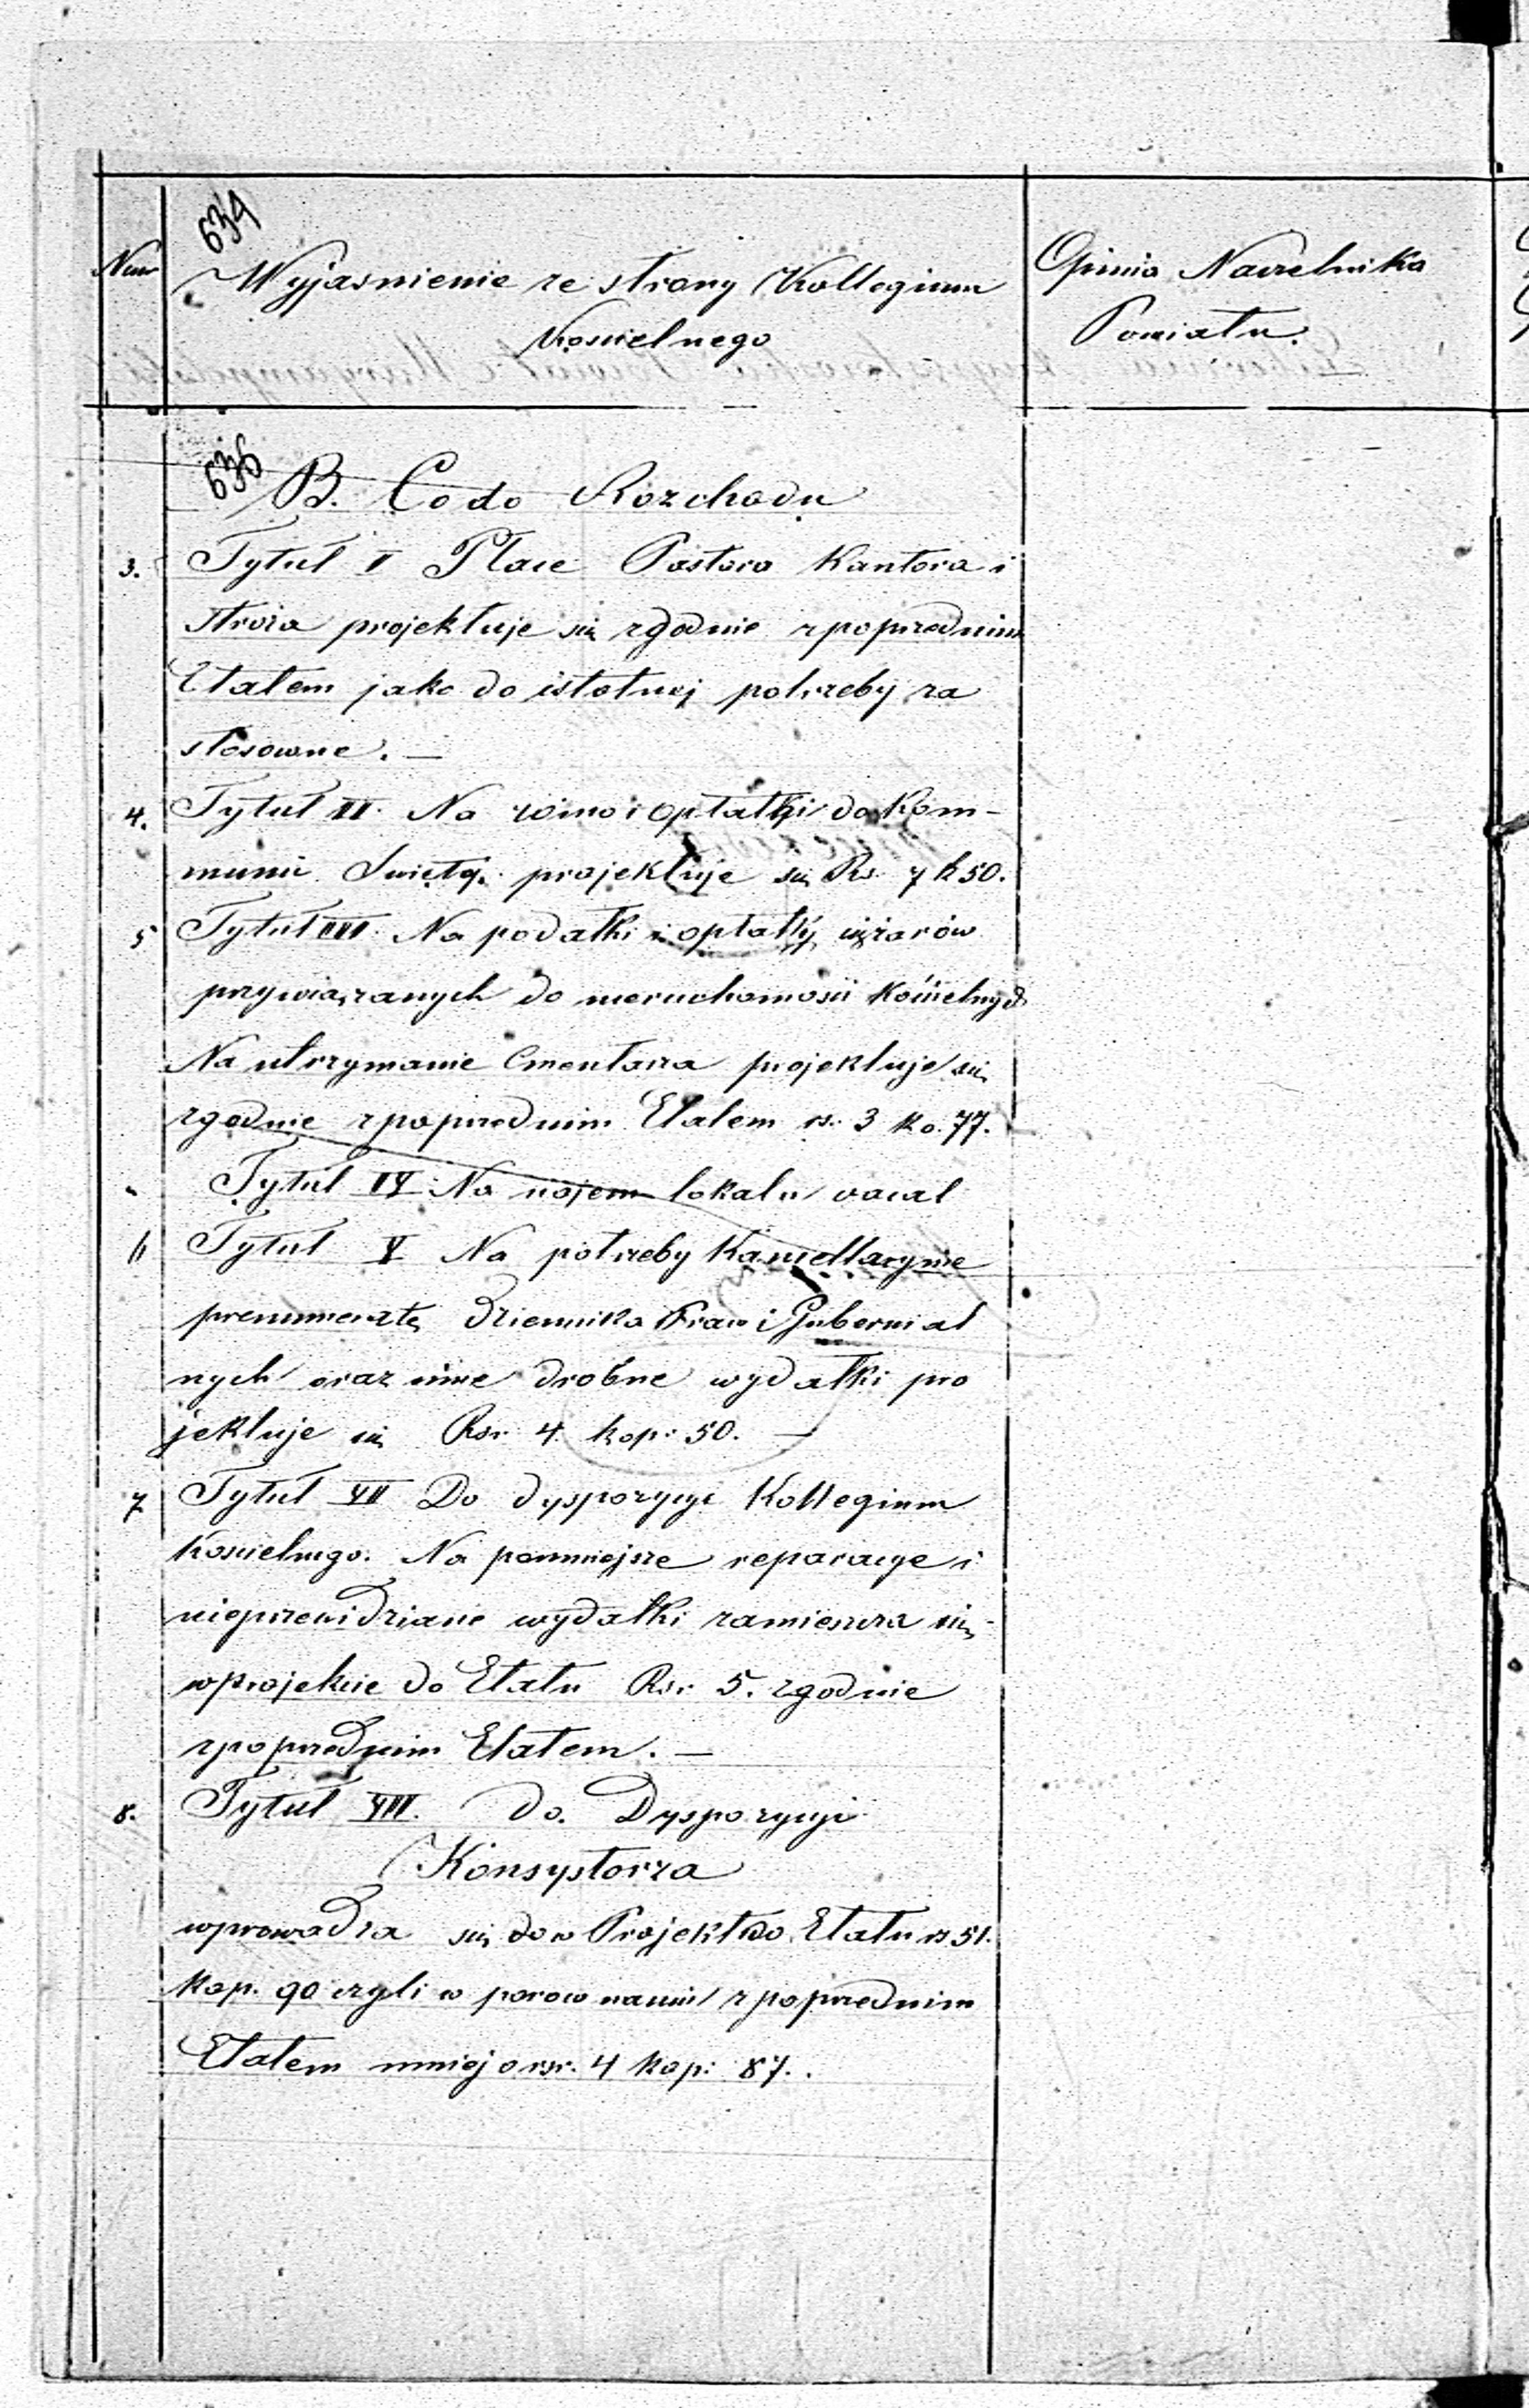 634
Num
Wyjasnienie ze strony Kollegium
Koscielnego
Opinia Naczelnika
Powiatu.
636
B. Co do Rozchodu
3. Tytuł I Płace Pastora Kantora i
stroża projektuje się zgodnie z poprzednim
Etatem jako do istotnej potrzeby za
stosowne. —
4. Tytuł II. Na wino i opłatki do Kom-
munii Swiętej. projektuje się Rs. 7 k 50.
5 Tytuł III. Na podatki i opłatty ciężarów
przywiązanych do nieruchomości Kościelnych
Na utrzymanie Cmentarza projektuje się
zgodnie z poprzednim Etatem rs. 3 ko. 77.
" Tytuł IV Na najem lokalu vacat
6 Tytuł V Na potrzeby Kancellaryine
prenumeratę Dziennika Praw i Gubernial
nych oraz inne drobne wydatki pro
jektuje się Rsr 4 kop: 50. —
7 Tytuł VII Do dyspozycyi Kollegium
Koscielnego. Na pommiejsze reparacye i
nieprzewidziane wydatki zamieszcza się
w projekcie do Etatu Rsr 5. zgodnie
z poprzednim Etatem. —
8. Tytuł VIII. do. Dyspozycyi
Konsystorza
wprowadza się do w Projekt do Etatu rs 51.
kop. 90 czyli w porownaniu z poprzednim
Etatem mniej o rsr. 4 kop: 87..